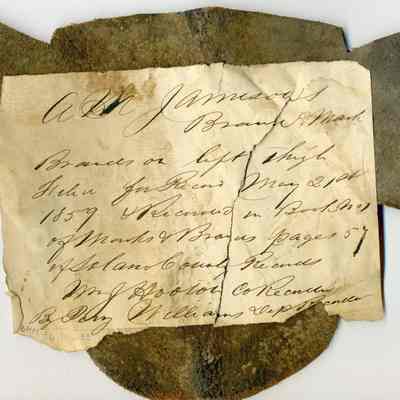 A M Jameson's
Brand & Mark
Brands on left thigh
Filed for Record May 21st
1859 & Recorded in Book No 1
of Marks & Brands pages 57
of Solano County Records
Wm J Co Recorder
By Williams Dep Recorder